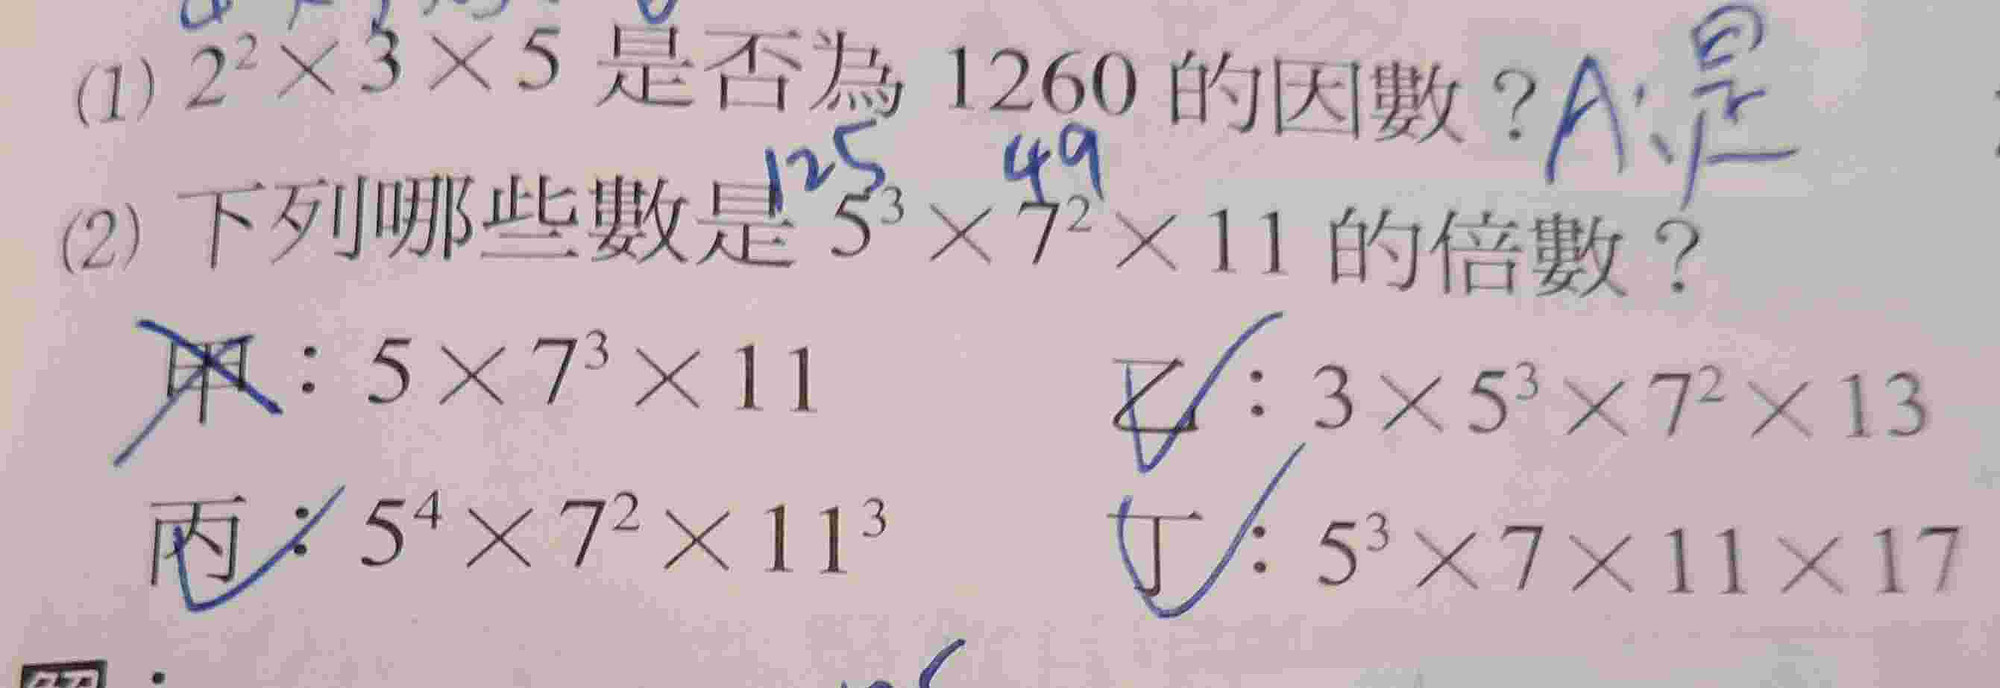 (1) 2² × 3 × 5 是否為 1260 的因數？A：是
125 49
(2) 下列哪些數是 5³ × 7² × 11 的倍數？
甲：5 × 7³ × 11 乙：3 × 5³ × 7² × 13
丙：5⁴ × 7² × 11³ 丁：5³ × 7 × 11 × 17